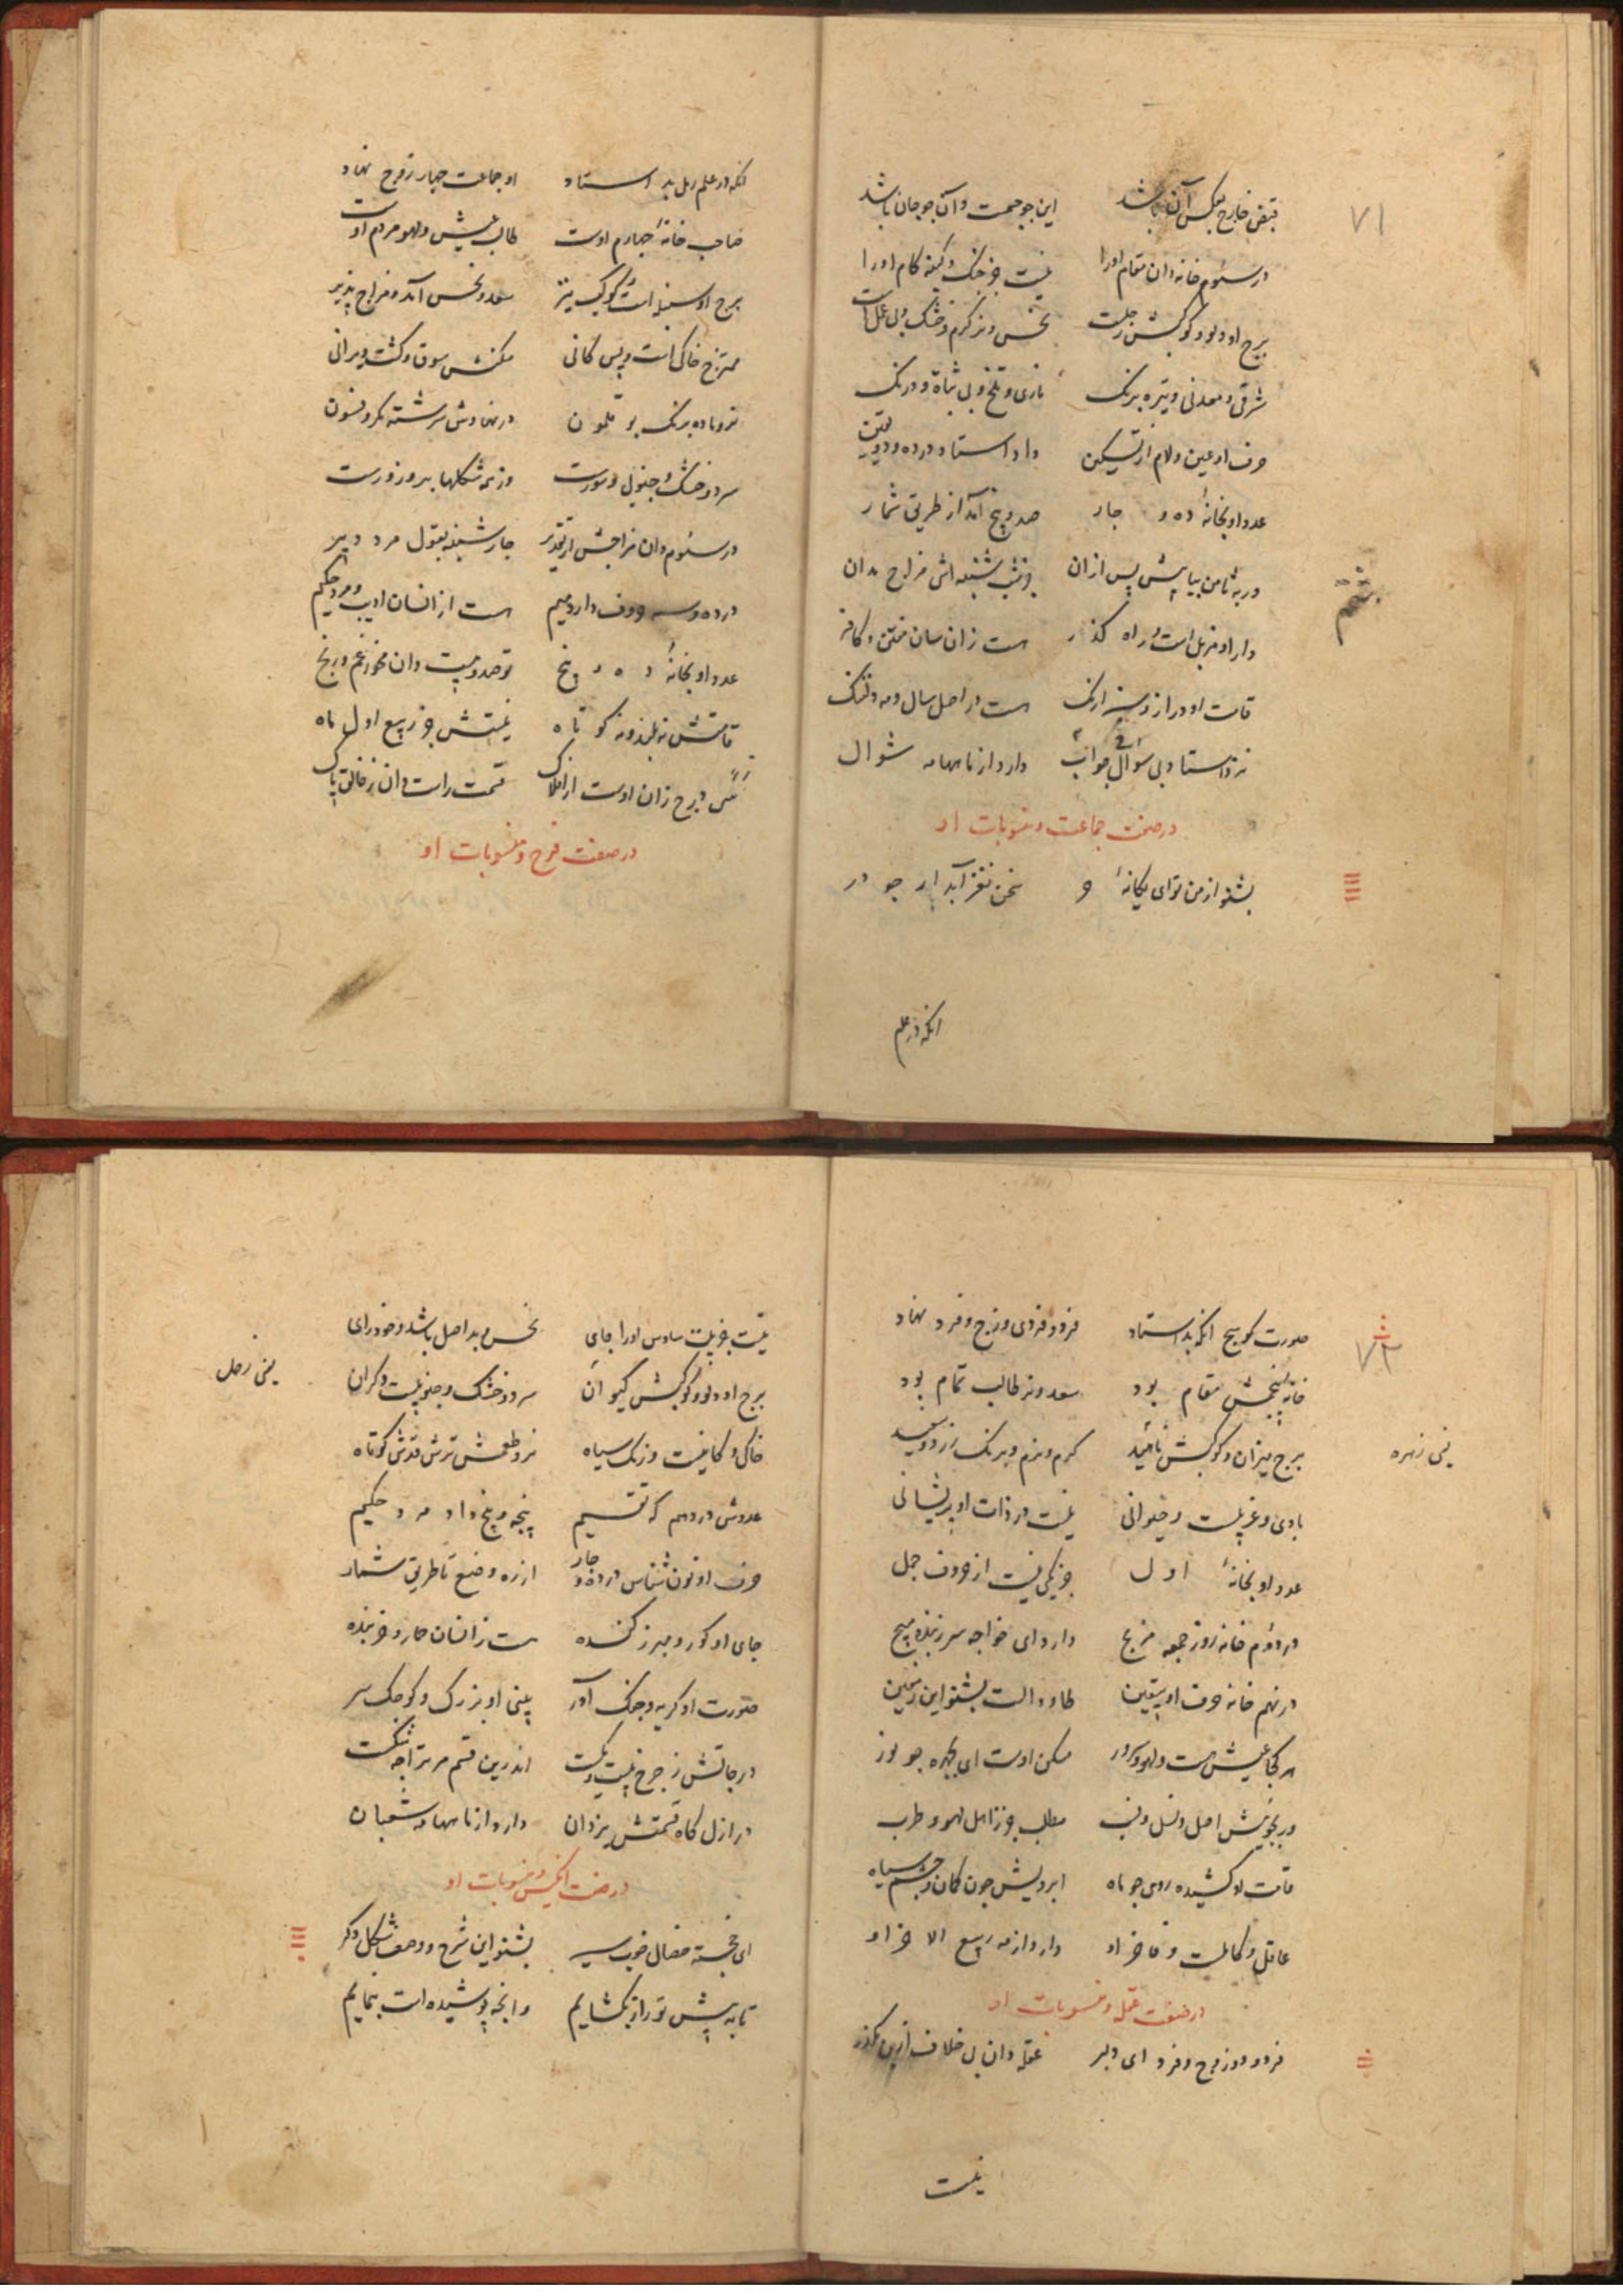 ۷۱
قبض خارج بعکس آن باشد این جو جسمت و آن جو جان باشد
در سئوم خانه دان مقام اورا نیست جز جنک و کینه کام اورا
برج او دلو و کوکبش زحلست نحس و نر کرم و خشک و بی عملست
شرقی و معدنی و تیره برنک ناری و تلخ و بی ثباة و درنک
حرف او عین و لام از تسکین داد استاد در ده و دو یقین
عدد او بخانهٔ ده و چار صد و پنج آمد از طریق شمار
ور به ثامن بیابیش پس ازان روز شنبه اش مزاج بدان
دار او مزبل است و راه کذر هست زانسان مفتن و کافر
قامت او دراز و سبز ارنک هست در اصل سال و مه دلتنک
نزد استاد بی سؤال و جواب دارد از ماهها مه شوال
در صفت جماعت و منسوبات او
بشنو از من تو ای یکانهٔ و سخن نغز آبدار جو در
انکه در علم
انکه در علم رمل بد استاد او جماعت چهار زوج نهاد
صاحب خانهٔ چهارم اوست طالب عیش و لهو مردم اوست
برج او سنبله است و کوکب تیر سعد و نحس آمد و مزاج پذیر
ممتزج خاکی است و پس کانی مسکنش سوق و کشت ویرانی
نر و ماده برنک بوقلمون در نهادش سرشته مکر و فسون
سرد و خشک و جنوبی و سورست وز همه شکلها بدو زورست
در سئوم دان مزاجش از تقدیر چار شنبه بقول مرد دبیر
در ده و سه حروف دارد میم هست از انسان ادیب و مرد حکیم
عدد او بخانهٔ ده و پنج تو صد و بیست دان مخور غم و رنج
قامتش نه بلند و نه کوتاه نیستش جز ربیع اول ماه
سی درج زان اوست از افلاک قسمت راست دان ز خالق پاک
در صفت فرح و منسوبات او
۷۲
صورت کوسج انکه بد استاد فرد و فردی و زوج و فرد نهاد
خانهٔ پنجمش مقام بود سعد و نر طالب تمام بود
برج میزان و کوکبش ناهید کرم و نرم و برنک زرد و سفید
یعنی زهره
بادی و غربیست و حیوانی نیست در ذات او پریشانی
عدد او بخانهٔ اول جز یکی نیست از حروف جمل
در دوم خانه روز جمعه مزج دارد ای خواجه سر زبنده مپیچ
در نهم خانه حرف او بیقین طا و دالست بشنو این ز معین
هر کجا عیش هست و لهو و سرور مسکن اوست ای بچهره جو نور
ور بجویش اصل و نسل و نسب مطلب جز ز اهل لهو و طرب
قامت او کشیده روی جو ماه ابرویش چون کمان و چشم سیاه
عاقل و کاملست و فاخر او دارد از مه ربیع الاخر او
در صفت عقله و منسوبات او
فرد و دو زوج و فرد ای دلبر عقله دان بی خلاف ازین مکذر
نیست
نیست جز بیت سادس اورا جای نحس و بد اصل باشد و خود رای
برج او دلو و کوکبش کیوان سرد و خشک و جنوبیست و کران
یعنی زحل
خاکی و کانیست و رنک سیاه نر و طعمش ترش قدش کوتاه
عددش در دهم که تقسیم پنجه و پنج داد مرد حکیم
حرف او نون شناس در ده و چار از ره وضع تا طریق شمار
جای او کور و مبرز کنده هست ز انسان حمار و خربنده
صورت او کریه و جنک آور بینی او بزرک و کوچک سر
درجاتش ز چرخ بیست و یکست اندرین قسم مر ترا چه شکست
در ازل کاه قسمتش یزدان دارد از ماهها مه شعبان
در صفت انکیس و منسوبات او
ای خجسته خصال خوب سیر بشنو این شرح و وصف شکل دکر
تا به پیش تو راز بکشایم وانچه پوشیده است بنمایم